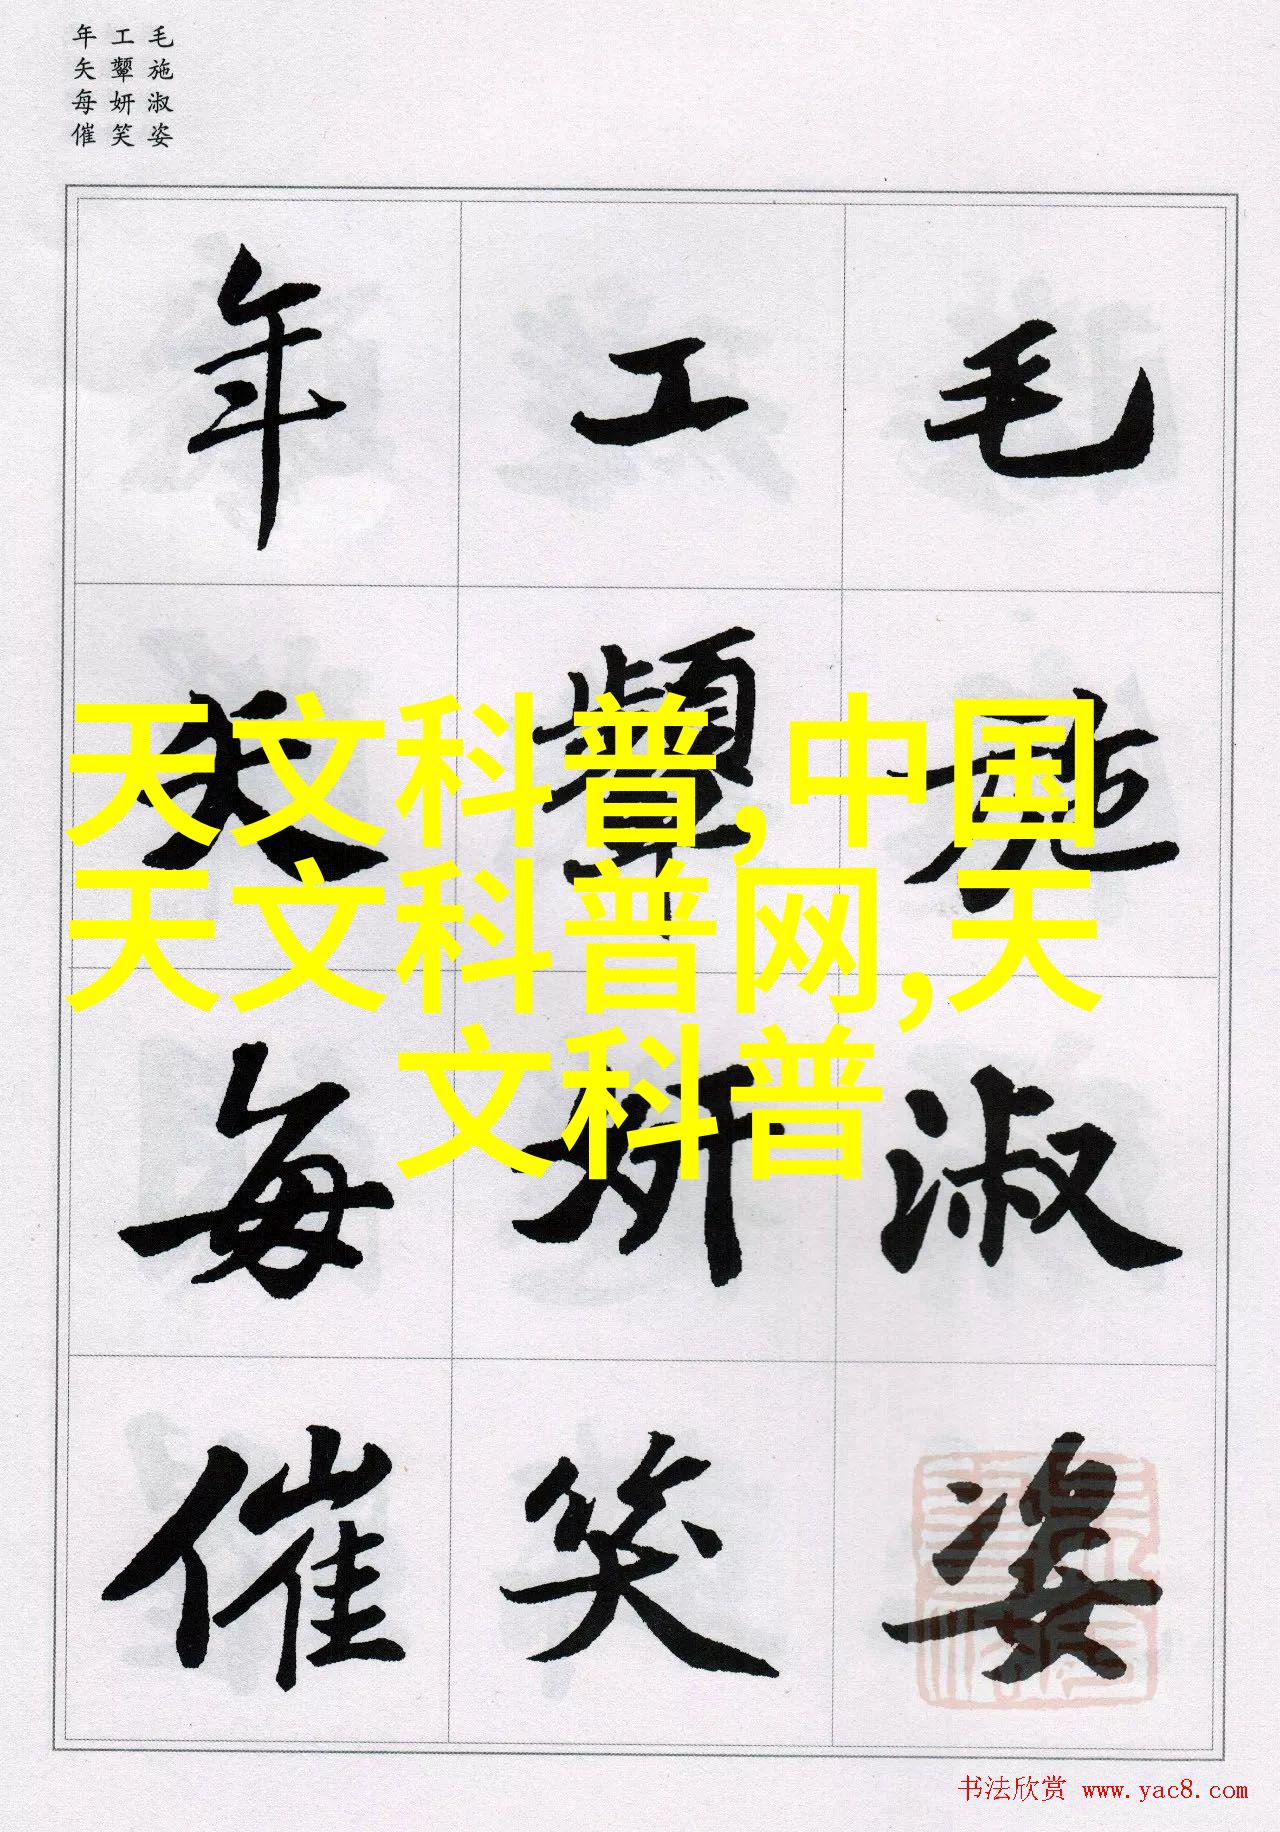 毛施淑姿
工颦妍笑
年矢每催
毛施淑姿
工颦妍笑
年矢每催
天文科普,中国
天文科普网,天
文科普
书法欣赏 www.yac8.com